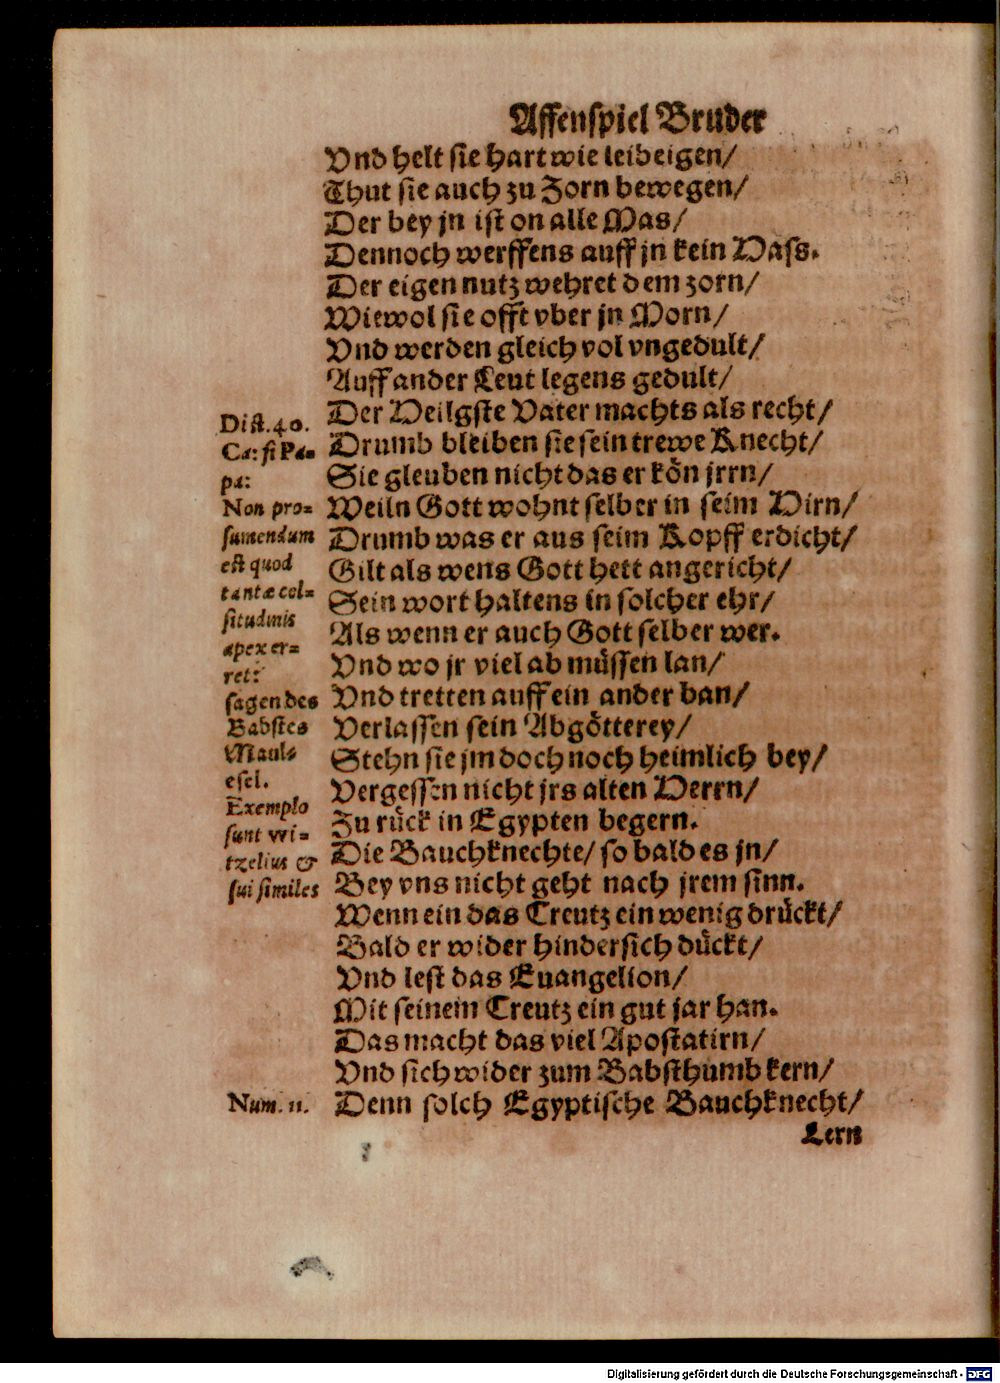 Affenspiel Bruder
Vnd helt sie hart wie leibeigen/
Thut sie auch zu Zorn bewegen/
Der bey jn ist on alle Mas/
Dennoch werffens auff jn kein Hass.
Der eigen nutz wehret dem zorn/
Wiewol sie offt vber jn Morn/
Vnd werden gleich vol vngedult/
Auff ander Leut legens gedult/
Der Heilgste Vater machts als recht/
Drumb bleiben sie sein trewe Knecht/
Sie gleuben nicht das er kön jrrn/
Weiln Gott wohnt selber in seim Hirn/
Drumb was er aus seim Kopff erdicht/
Gilt als wens Gott hett angericht/
Sein wort haltens in solcher ehr/
Als wenn er auch Gott selber wer.
Vnd wo jr viel ab müssen lan/
Vnd tretten auff ein ander ban/
Verlassen sein Abgötterey/
Stehn sie jm doch noch heimlich bey/
Vergessen nicht jrs alten Herrn/
Zu rück in Egypten begern.
Die Bauchknechte/ so bald es jn/
Bey vns nicht geht nach jrem sinn.
Wenn ein das Creutz ein wenig drückt/
Bald er wider hindersich dückt/
Vnd lest das Euangelion/
Mit seinem Creutz ein gut jar han.
Das macht das viel Apostatirn/
Vnd sich wider zum Babsthumb kern/
Denn solch Egyptische Bauchknecht/
Lern
Dist. 40.
Ca: si Pa=
pa:
Non pro=
sumendum
est quod
tantæ cel=
situdinis
apex er=
ret:
sagen des
Babstes
Maul=
esel.
Exemplo
sunt wi=
tzelius &
sui similes
Num. 11.
Digitalisierung gefördert durch die Deutsche Forschungsgemeinschaft - DFG